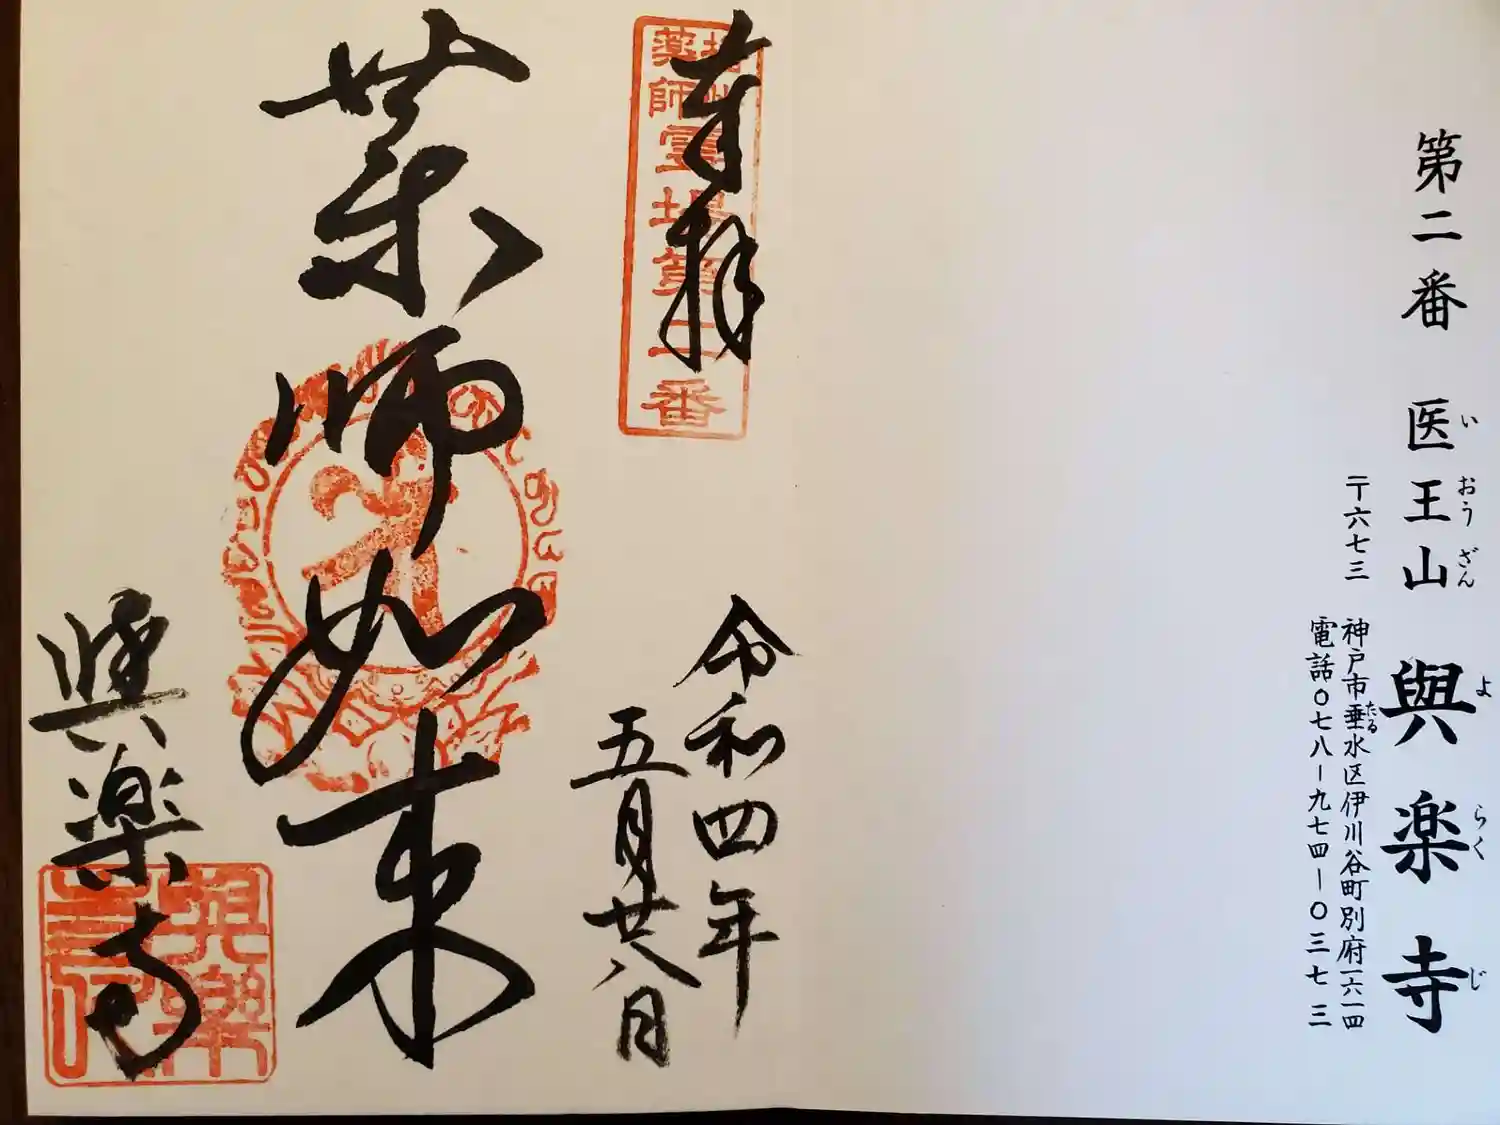 第二番 医王山 與楽寺
いおうざん よらくじ
〒六七三 神戸市垂水区伊川谷町別府一六一四
たる
電話〇七八ー九七四ー〇三七三
奉拝
播州薬師霊場第二番
令和四年
五月廿八日
薬師如来
與楽寺